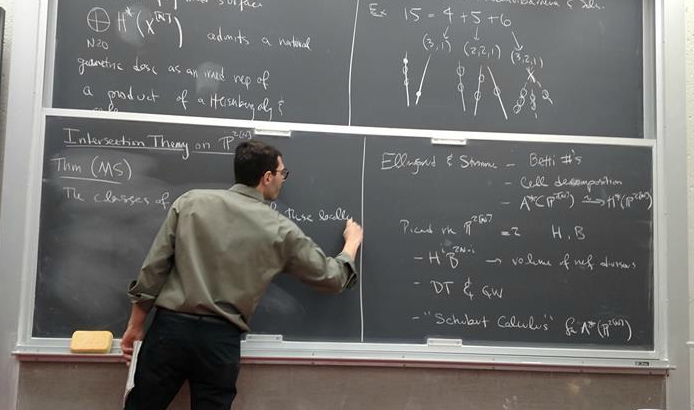 ⊕ H*(X^[N]) admits a natural
N≥0
geometric desc as an irred rep of
a product of a Heisenberg alg &
Ex 15 = 4 + 5 + 6
(3,1) (2,2,1) (3,2,1)
Intersection Theory on P^2[N]
Thm (MS)
The classes of these locally
Ellingsrud & Strømme - Betti #'s
- Cell decomposition
- A*(P^2[N]) ⥲ H*(P^2[N])
Picard rk P^2[N] = 2 H, B
- H^i B^2N-i → volume of nef divisors
- DT & GW
- "Schubert Calculus" for A*(P^2[N])